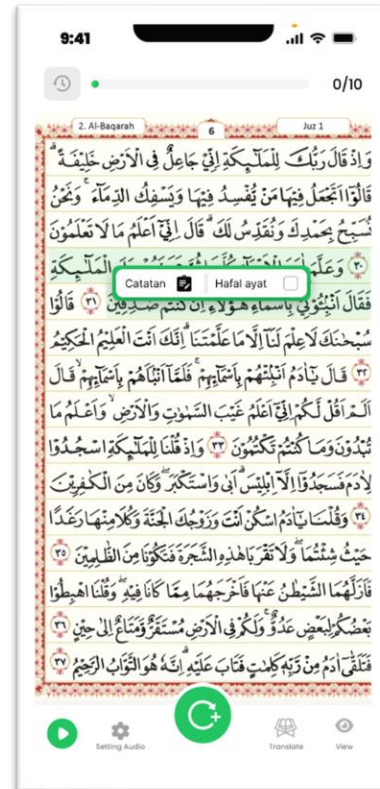 9:41
0/10
2. Al-Baqarah 6 Juz 1
وَاِذْ قَالَ رَبُّكَ لِلْمَلٰۤىِٕكَةِ اِنِّيْ جَاعِلٌ فِى الْاَرْضِ خَلِيْفَةً ۗ
قَالُوْٓا اَتَجْعَلُ فِيْهَا مَنْ يُّفْسِدُ فِيْهَا وَيَسْفِكُ الدِّمَاۤءَ ۚ وَنَحْنُ
نُسَبِّحُ بِحَمْدِكَ وَنُقَدِّسُ لَكَ ۗ قَالَ اِنِّيْٓ اَعْلَمُ مَا لَا تَعْلَمُوْنَ
٣٠ وَعَلَّمَ الْمَلٰۤىِٕكَةِ
Catatan Hafal ayat
فَقَالَ اَنْۢبِـُٔوْنِيْ بِاَسْمَاۤءِ هٰٓؤُلَاۤءِ اِنْ كُنْتُمْ صٰدِقِيْنَ ٣١ قَالُوْا
سُبْحٰنَكَ لَا عِلْمَ لَنَآ اِلَّا مَا عَلَّمْتَنَا ۗاِنَّكَ اَنْتَ الْعَلِيْمُ الْحَكِيْمُ
٣٢ قَالَ يٰٓاٰدَمُ اَنْۢبِئْهُمْ بِاَسْمَاۤىِٕهِمْ ۚ فَلَمَّآ اَنْۢبَاَهُمْ بِاَسْمَاۤىِٕهِمْۙ قَالَ
اَلَمْ اَقُلْ لَّكُمْ اِنِّيْٓ اَعْلَمُ غَيْبَ السَّمٰوٰتِ وَالْاَرْضِۙ وَاَعْلَمُ مَا
تُبْدُوْنَ وَمَا كُنْتُمْ تَكْتُمُوْنَ ٣٣ وَاِذْ قُلْنَا لِلْمَلٰۤىِٕكَةِ اسْجُدُوْا
لِاٰدَمَ فَسَجَدُوْٓا اِلَّآ اِبْلِيْسَۗ اَبٰى وَاسْتَكْبَرَۖ وَكَانَ مِنَ الْكٰفِرِيْنَ
٣٤ وَقُلْنَا يٰٓاٰدَمُ اسْكُنْ اَنْتَ وَزَوْجُكَ الْجَنَّةَ وَكُلَا مِنْهَا رَغَدًا
حَيْثُ شِئْتُمَاۖ وَلَا تَقْرَبَا هٰذِهِ الشَّجَرَةَ فَتَكُوْنَا مِنَ الظّٰلِمِيْنَ ٣٥
فَاَزَلَّهُمَا الشَّيْطٰنُ عَنْهَا فَاَخْرَجَهُمَا مِمَّا كَانَا فِيْهِ ۖ وَقُلْنَا اهْبِطُوْا
بَعْضُكُمْ لِبَعْضٍ عَدُوٌّ ۚ وَلَكُمْ فِى الْاَرْضِ مُسْتَقَرٌّ وَّمَتَاعٌ اِلٰى حِيْنٍ ٣٦
فَتَلَقّٰٓى اٰدَمُ مِنْ رَّبِّهٖ كَلِمٰتٍ فَتَابَ عَلَيْهِ ۗ اِنَّهٗ هُوَ التَّوَّابُ الرَّحِيْمُ ٣٧
Setting Audio Translate View